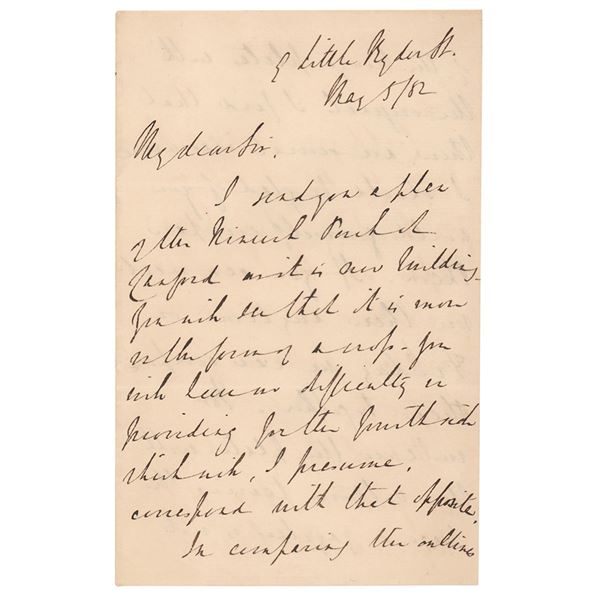 9 Little Ryder St.
May 5/82
My dear Sir,
I send you a plan
of the Nineveh Porch at
Canford as it is now building.
You will see that it is now
in the form of a cross – you
will have no difficulty in
providing for the fourth side
which will, I presume,
correspond with that opposite.
In comparing the outlines